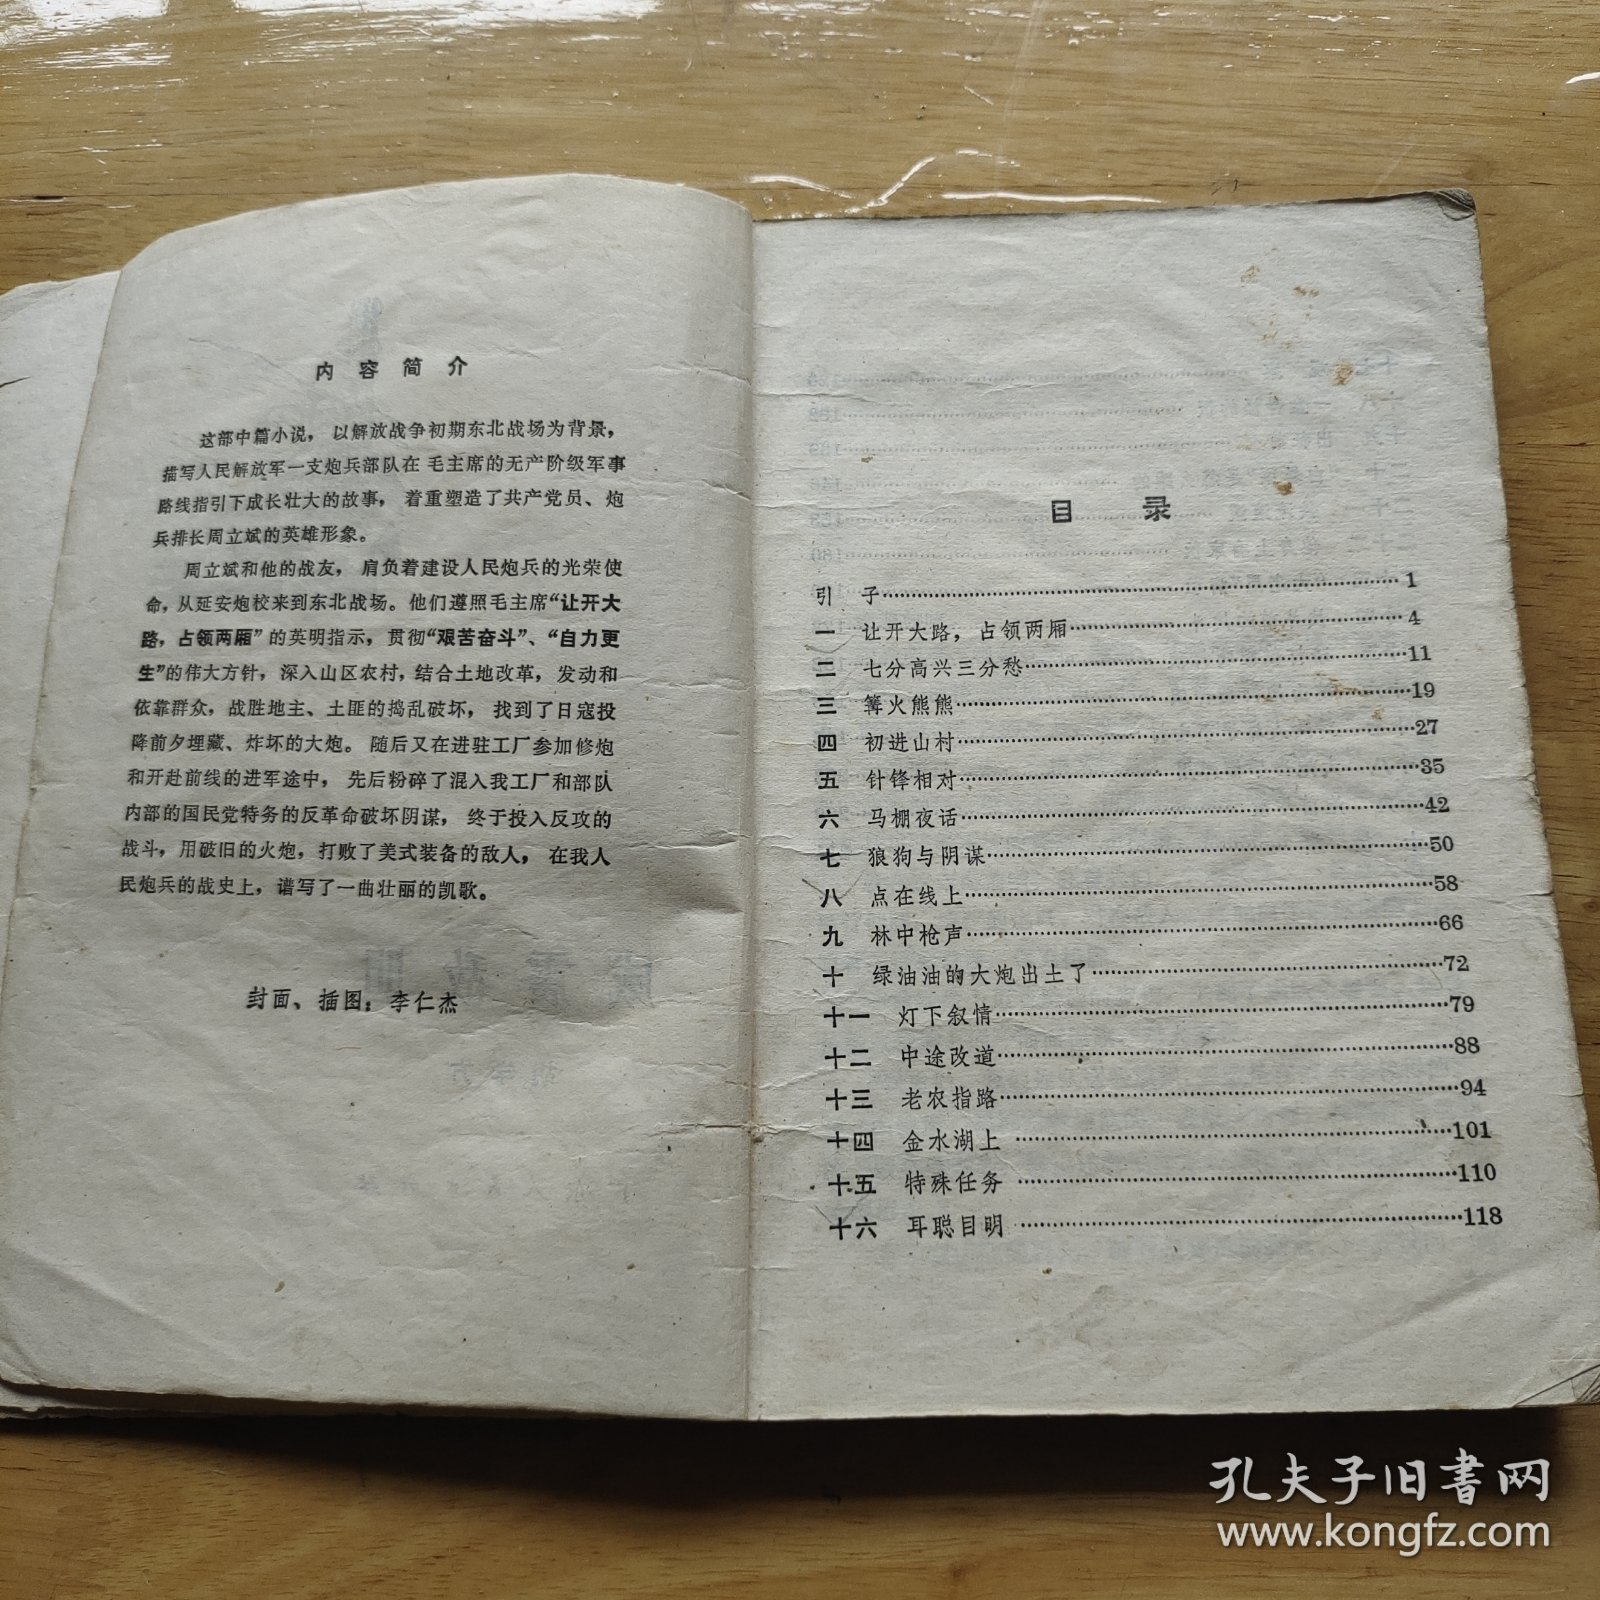 内容简介
这部中篇小说，以解放战争初期东北战场为背景，
描写人民解放军一支炮兵部队在毛主席的无产阶级军事
路线指引下成长壮大的故事，着重塑造了共产党员、炮
兵排长周立斌的英雄形象。
周立斌和他的战友，肩负着建设人民炮兵的光荣使
命，从延安炮校来到东北战场。他们遵照毛主席“让开大
路，占领两厢”的英明指示，贯彻“艰苦奋斗”、“自力更
生”的伟大方针，深入山区农村，结合土地改革，发动和
依靠群众，战胜地主、土匪的捣乱破坏，找到了日寇投
降前夕埋藏、炸坏的大炮。随后又在进驻工厂参加修炮
和开赴前线的进军途中，先后粉碎了混入我工厂和部队
内部的国民党特务的反革命破坏阴谋，终于投入反攻的
战斗，用破旧的火炮，打败了美式装备的敌人，在我人
民炮兵的战史上，谱写了一曲壮丽的凯歌。
封面、插图：李仁杰
目录
引 子……1
一 让开大路，占领两厢……4
二 七分高兴三分愁……11
三 篝火熊熊……19
四 初进山村……27
五 针锋相对……35
六 马棚夜话……42
七 狼狗与阴谋……50
八 点在线上……58
九 林中枪声……66
十 绿油油的大炮出土了……72
十一 灯下叙情……79
十二 中途改道……88
十三 老农指路……94
十四 金水湖上……101
十五 特殊任务……110
十六 耳聪目明……118
孔夫子旧书网
www.kongfz.com